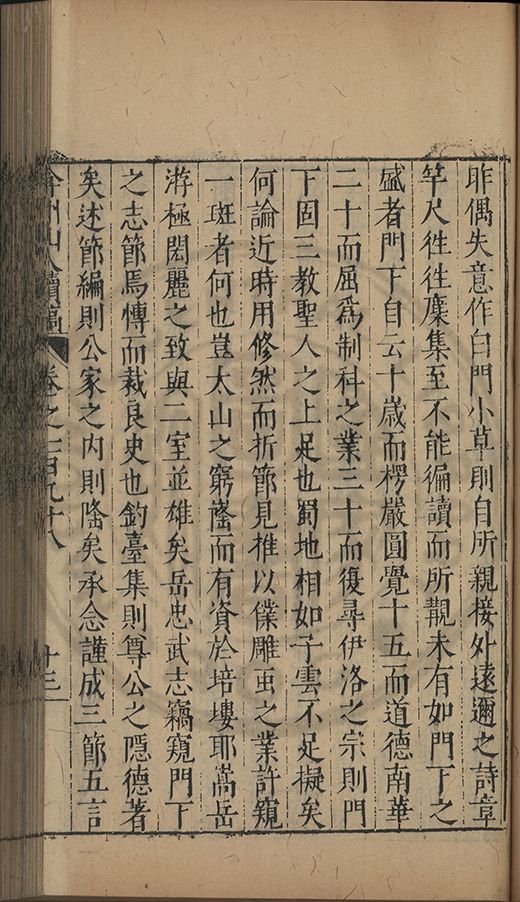 昨偶失意作白門小草則自所親接外遠邇之詩章
竿尺徃徃麇集至不能徧讀而所覩未有如門下之
盛者門下自云十歲而楞嚴圓覺十五而道德南華
二十而屈爲制科之業三十而復尋伊洛之宗則門
下固三教聖人之上足也蜀地相如子雲不足擬矣
何論近時用修然而折節見推以僕雕虫之業許窺
一斑者何也豈太山之窮窿而有資於培塿耶嵩岳
游極閎麗之致與二室並雄矣岳忠武志竊窺門下
之志節焉慱而裁良史也釣臺集則尊公之隱德著
矣述節編則公家之内則隆矣承念謹成三節五言
弇州山人續稿
卷之一百九十八
十三